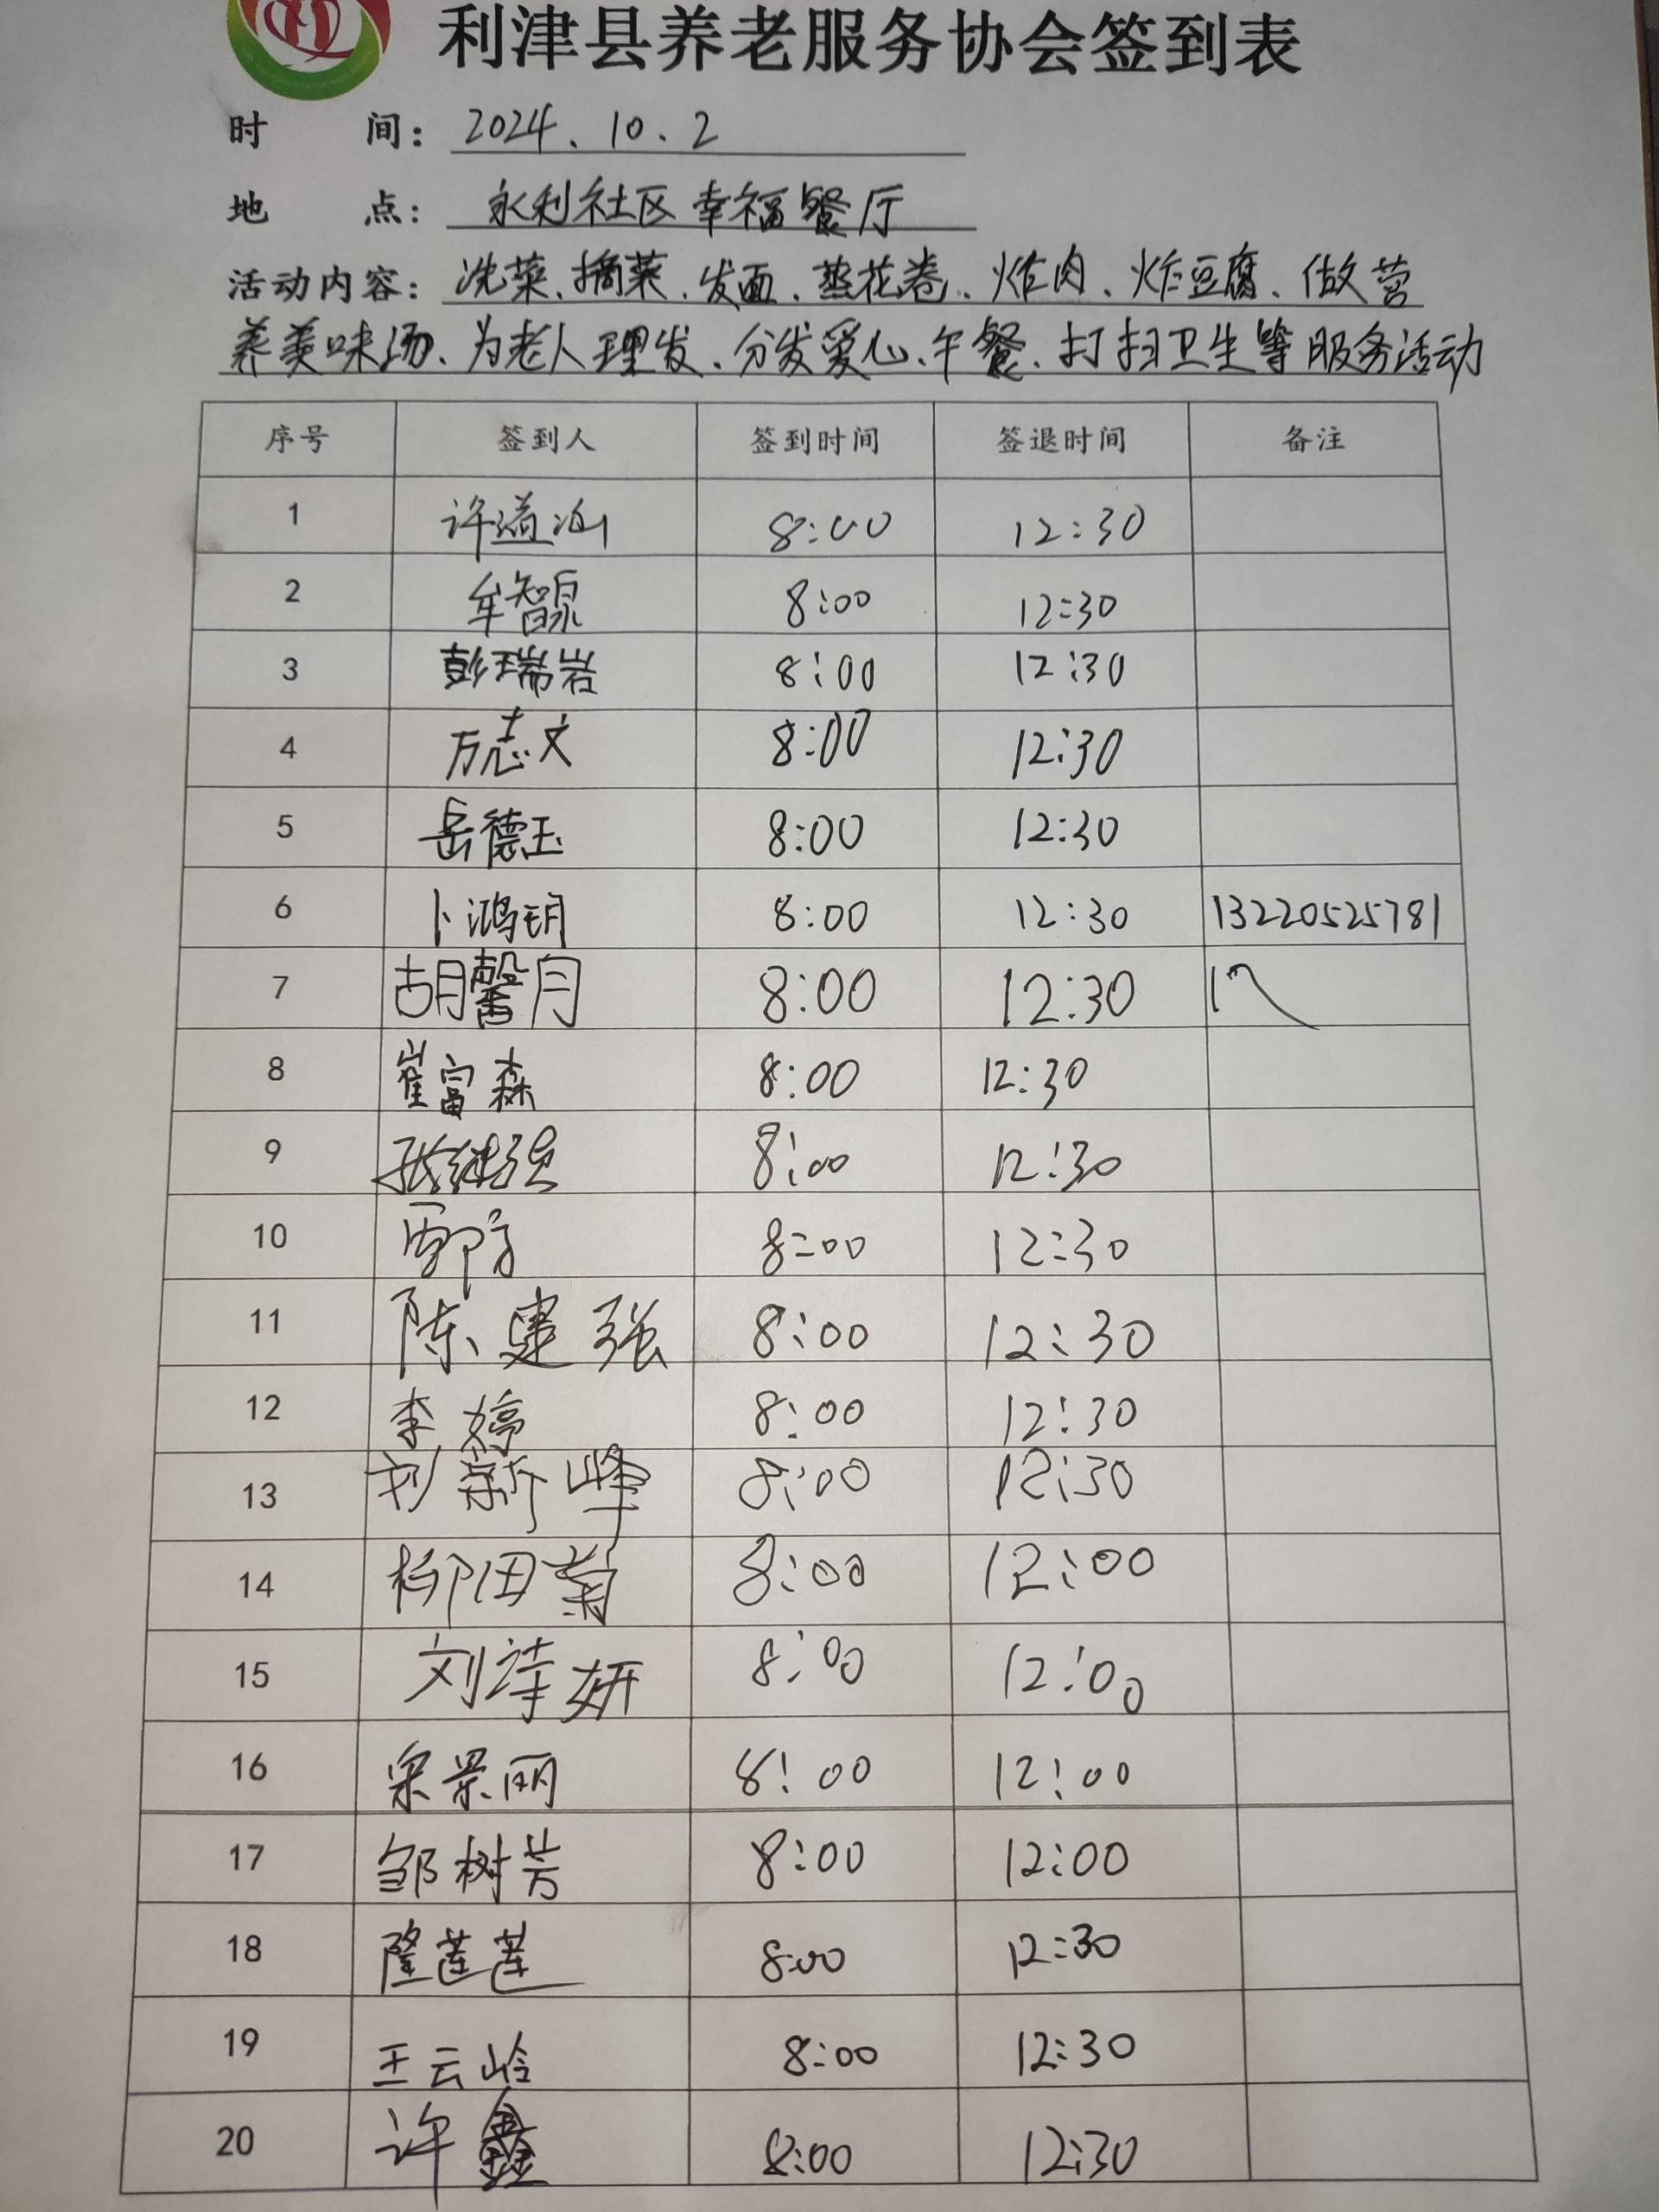 利津县养老服务协会签到表
时 间: 2024.10.2
地 点: 永利社区幸福餐厅
活动内容: 洗菜、摘菜、发面、蒸花卷、炸肉、炸豆腐、做营
养美味汤、为老人理发、分发爱心午餐、打扫卫生等服务活动
序号 签到人 签到时间 签退时间 备注
1 许 8:00 12:30
2 牟智泉 8:00 12:30
3 彭瑞岩 8:00 12:30
4 万志文 8:00 12:30
5 岳德玉 8:00 12:30
6 卜鸿玥 8:00 12:30 13220525781
7 胡馨月 8:00 12:30
8 崔富森 8:00 12:30
9 张继强 8:00 12:30
10 8:00 12:30
11 陈建强 8:00 12:30
12 李婷 8:00 12:30
13 刘新峰 8:00 12:30
14 柳田菊 8:00 12:00
15 刘诗妍 8:00 12:00
16 宋景丽 8:00 12:00
17 邹树芳 8:00 12:00
18 隆莲莲 8:00 12:30
19 王云岭 8:00 12:30
20 许鑫 8:00 12:30